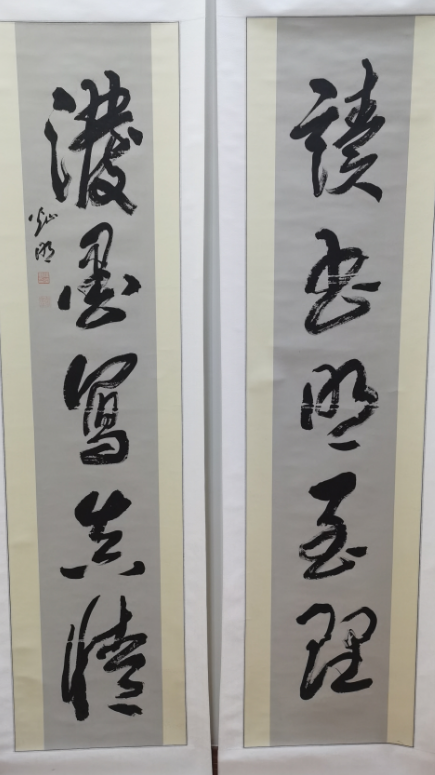 讀書明至理
潑墨寫真情
灿明